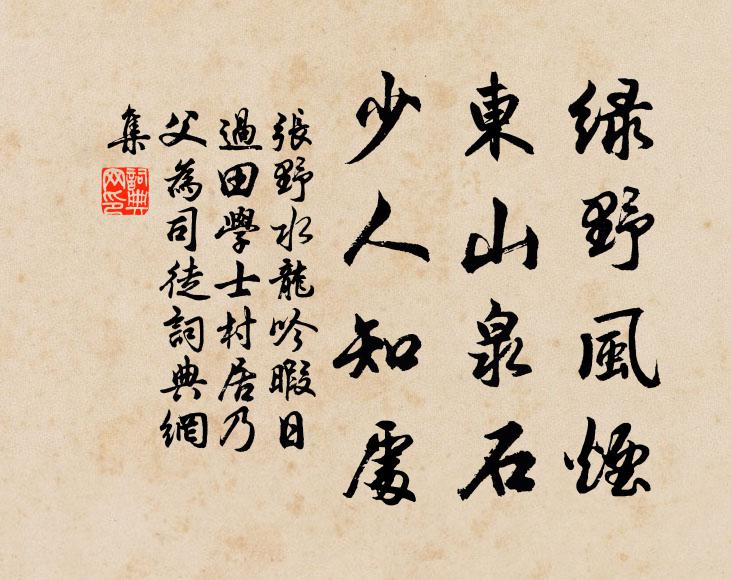 緑野風煙
東山泉石
少人知處
張野水龍吟暇日
過田學士村居乃
父為司徒詞典網
集
詞典網印